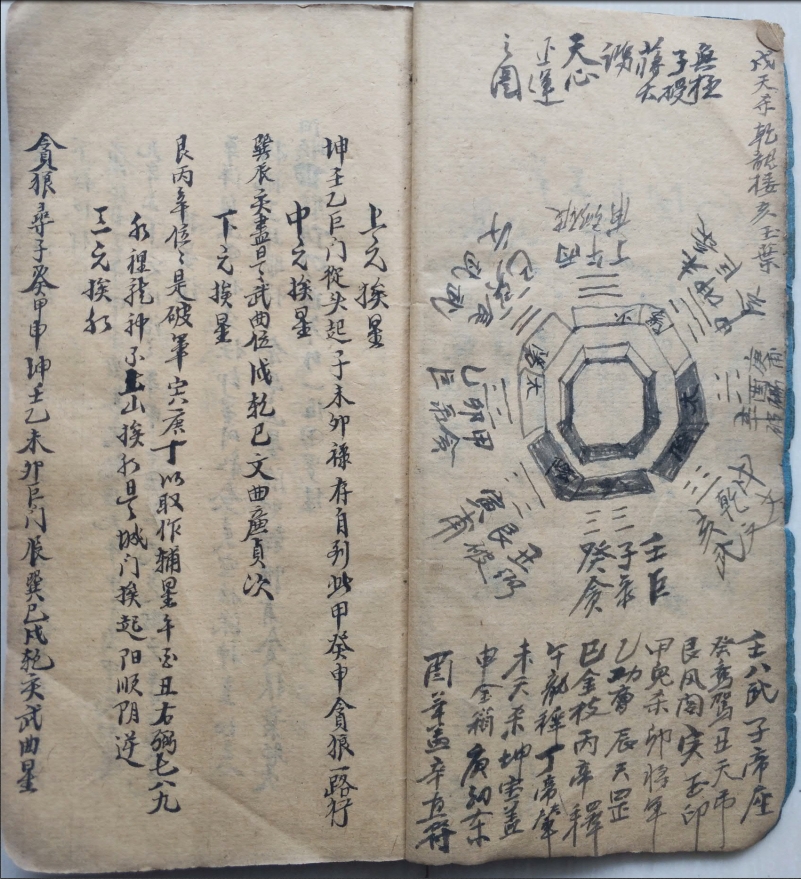 戌天杀乾龍楼亥玉葉
無極
子授
蒋大
天心
正運
之圖
丁午丙
甲贪
卯
乙巨
丑弼
艮破
寅甫
乾
亥武
壬巨
子
癸贪
壬八武子帝座
癸鸾驾丑天市
艮凤阁寅玉印
甲鬼杀卯将军
乙功曹辰天罡
巳金枝丙帝釋
午龍墀丁帝輦
未天杀坤宝盖
申金箱庚
酉華盖辛直符
上元挨星
坤壬乙巨门從头起子未卯禄存自列此甲癸申貪狼一路行
中元挨星
巽辰亥盡是武曲位戌乾巳文曲廉貞次
下元挨星
艮丙辛位々是破軍寅庚丁以取作輔星午酉丑右弼七八九
水裡龍神不上山挨水是城门挨起阳順阴逆
三元挨水
貪狼尋子癸甲申坤壬乙未卯巨门辰巽巳戌乾亥武曲星